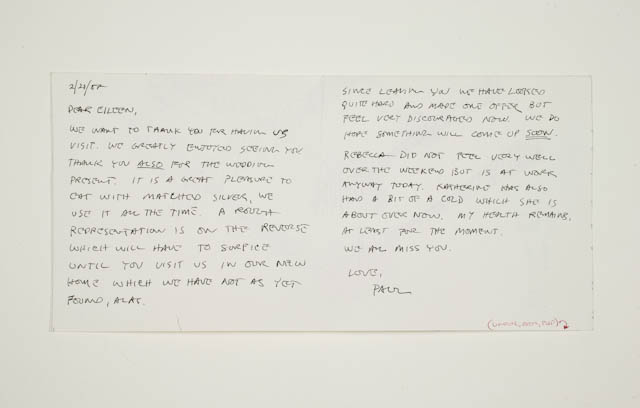 2/21/82
DEAR EILEEN,
WE WANT TO THANK YOU FOR HAVING US
VISIT. WE GREATLY ENJOYED SEEING YOU
THANK YOU ALSO FOR THE WEDDING
PRESENT. IT IS A GREAT PLEASURE TO
EAT WITH MATCHED SILVER, WE
USE IT ALL THE TIME. A ROUGH
REPRESENTATION IS ON THE REVERSE
WHICH WILL HAVE TO SUFFICE
UNTIL YOU VISIT US IN OUR NEW
HOME WHICH WE HAVE NOT AS YET
FOUND, ALAS.
SINCE LEAVING YOU WE HAVE LOOKED
QUITE HARD AND MADE ONE OFFER BUT
FEEL VERY DISCOURAGED NOW. WE DO
HOPE SOMETHING WILL COME UP SOON.
REBECCA DID NOT FEEL VERY WELL
OVER THE WEEKEND BUT IS AT WORK
ANYWAY TODAY. KATHERINE HAS ALSO
HAD A BIT OF A COLD WHICH SHE IS
ABOUT OVER NOW. MY HEALTH REMAINS,
AT LEAST FOR THE MOMENT.
WE ALL MISS YOU.
LOVE,
PAUL